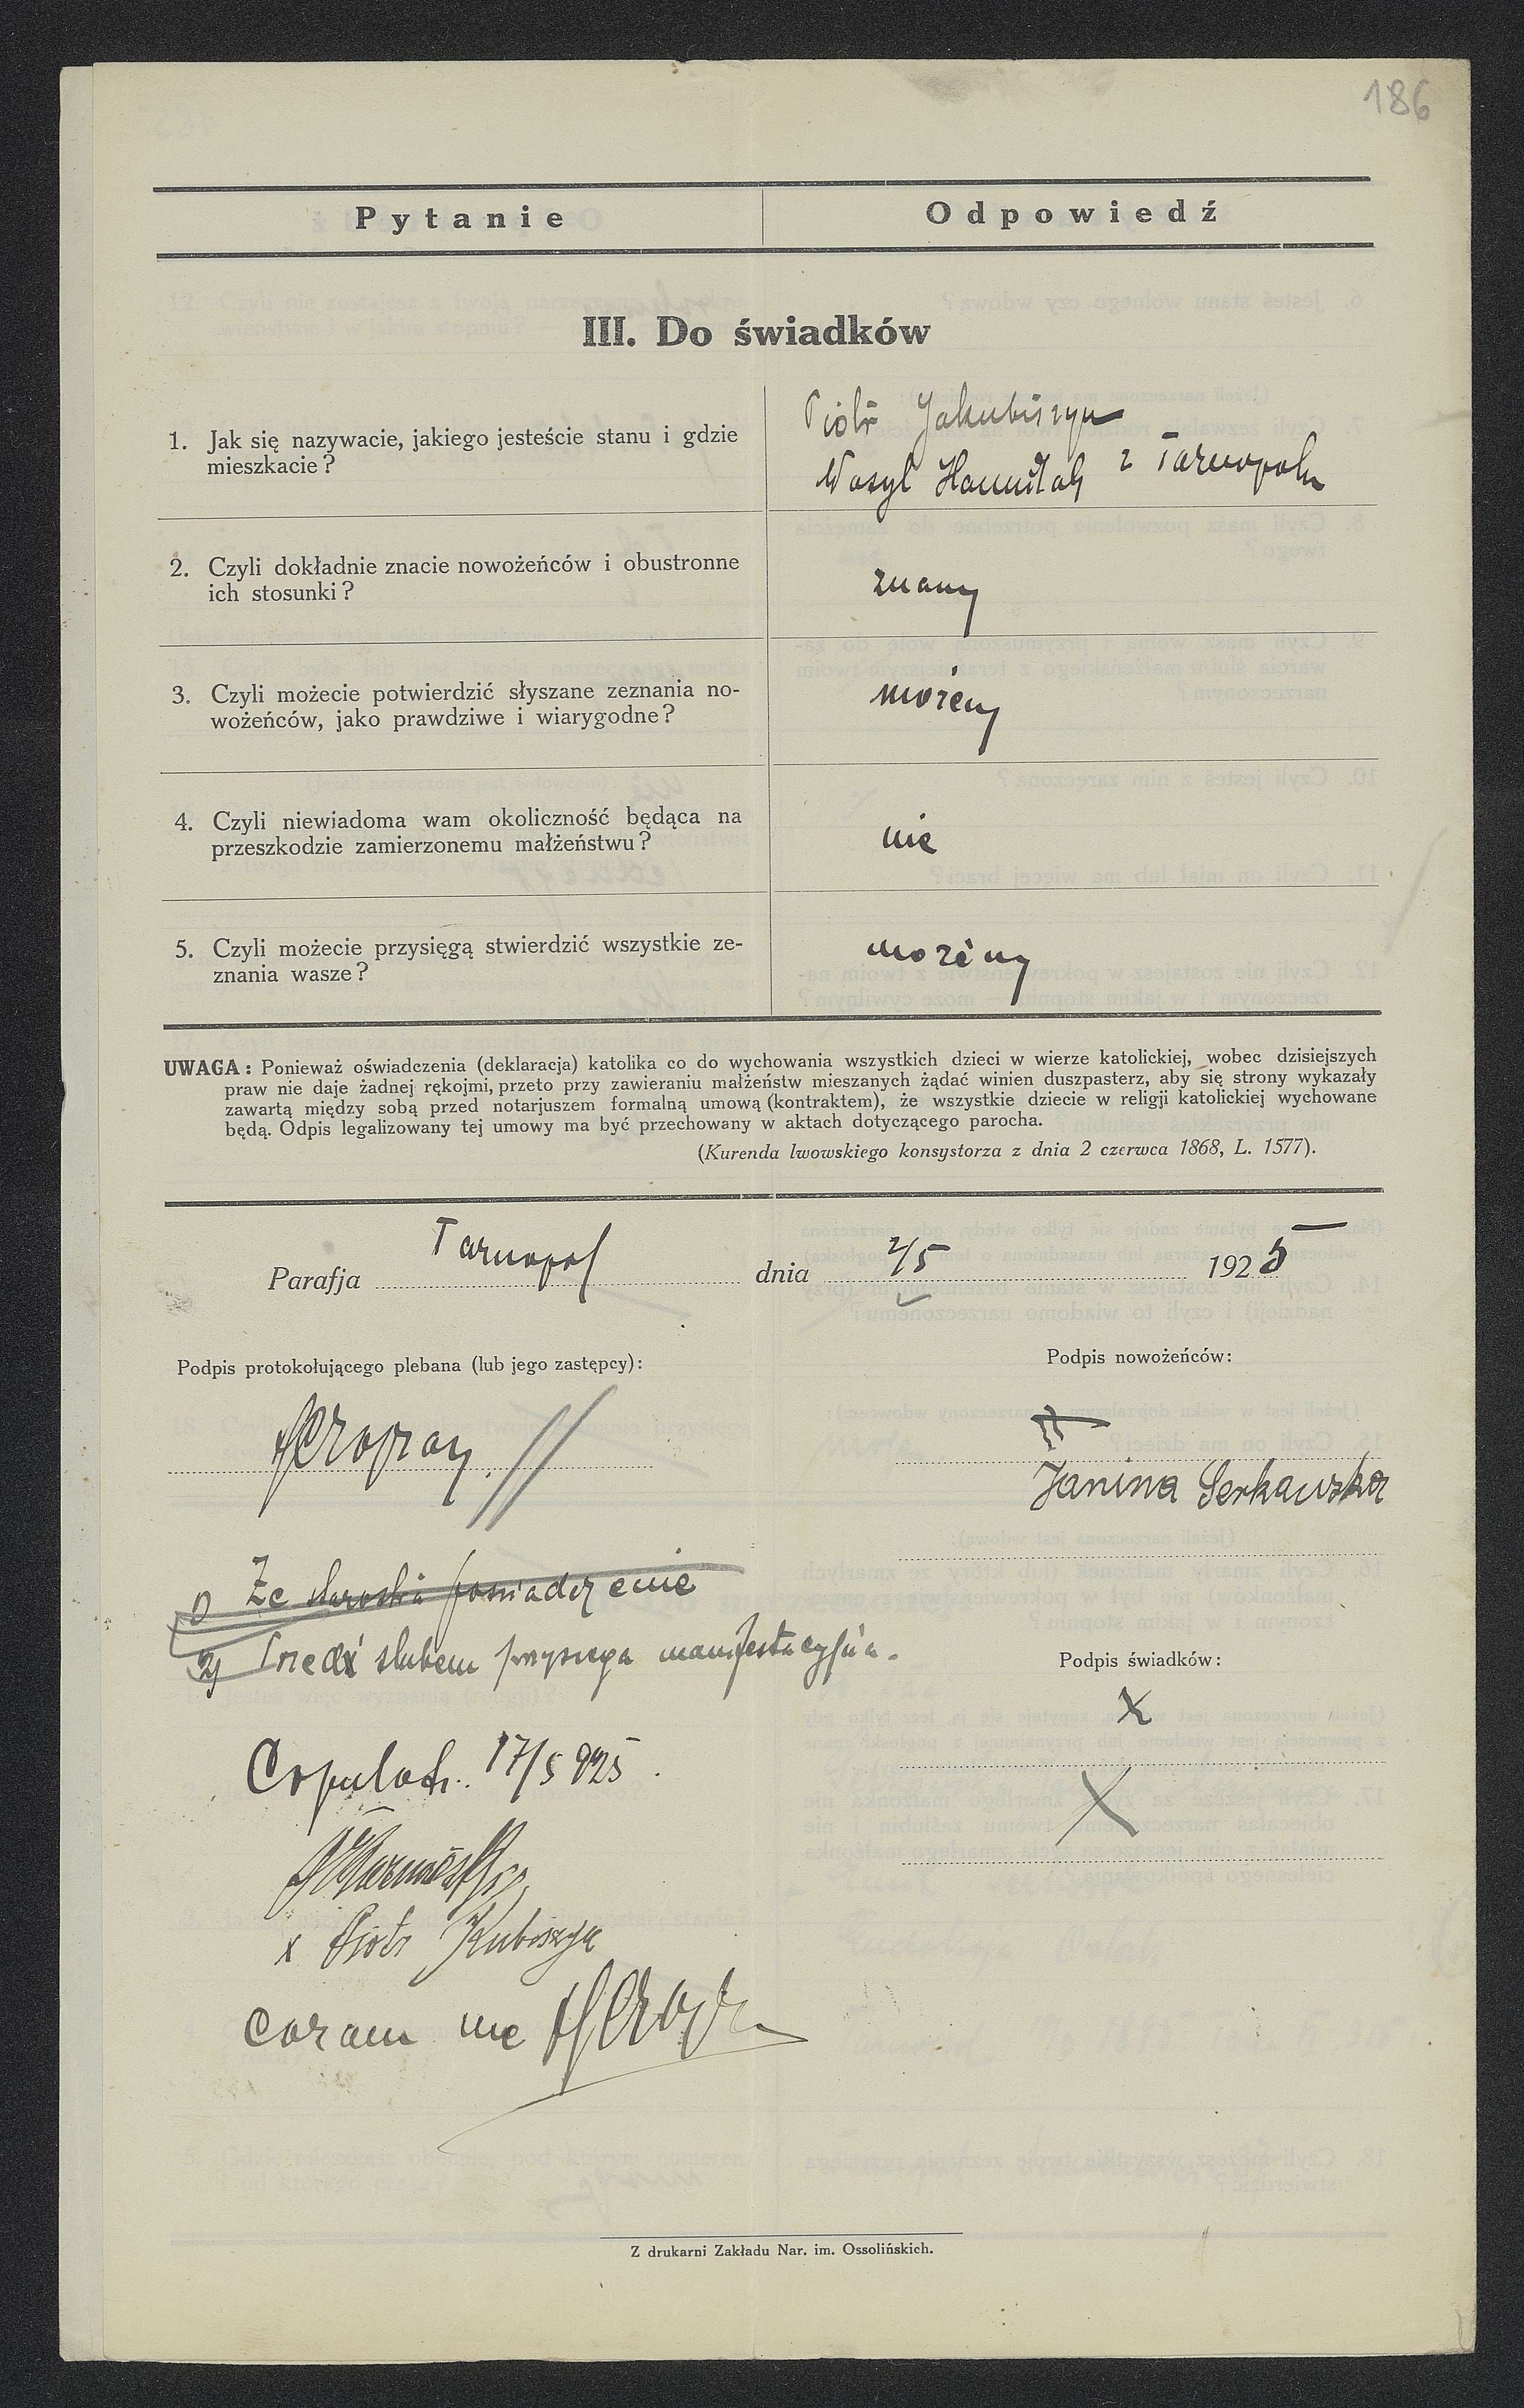 186
Pytanie
Odpowiedź
III. Do świadków
1. Jak się nazywacie, jakiego jesteście stanu i gdzie
mieszkacie?
Piotr Jakubiszyn
Wasyl z Tarnopola
2. Czyli dokładnie znacie nowożeńców i obustronne
ich stosunki?
znamy
3. Czyli możecie potwierdzić słyszane zeznania no-
wożeńców, jako prawdziwe i wiarygodne?
możemy
4. Czyli niewiadoma wam okoliczność będąca na
przeszkodzie zamierzonemu małżeństwu?
nie
5. Czyli możecie przysięgą stwierdzić wszystkie ze-
znania wasze?
możemy
UWAGA: Ponieważ oświadczenia (deklaracja) katolika co do wychowania wszystkich dzieci w wierze katolickiej, wobec dzisiejszych
praw nie daje żadnej rękojmi, przeto przy zawieraniu małżeństw mieszanych żądać winien duszpasterz, aby się strony wykazały
zawartą między sobą przed notarjuszem formalną umową (kontraktem), że wszystkie dziecie w religji katolickiej wychowane
będą. Odpis legalizowany tej umowy ma być przechowany w aktach dotyczącego parocha.
(Kurenda lwowskiego konsystorza z dnia 2 czerwca 1868, L. 1577).
Parafja Tarnopol dnia 2/5 1925
Podpis protokołującego plebana (lub jego zastępcy):
Podpis nowożeńców:
Janina Serkawska
1) Ze starostwa poświadczenie
2) Przed ślubem przysięga manifestacyjna.
Podpis świadków:
X
X
Copulati. 17/5 925.
x Piotr Kubiszyn
coram me
Z drukarni Zakładu Nar. im. Ossolińskich.